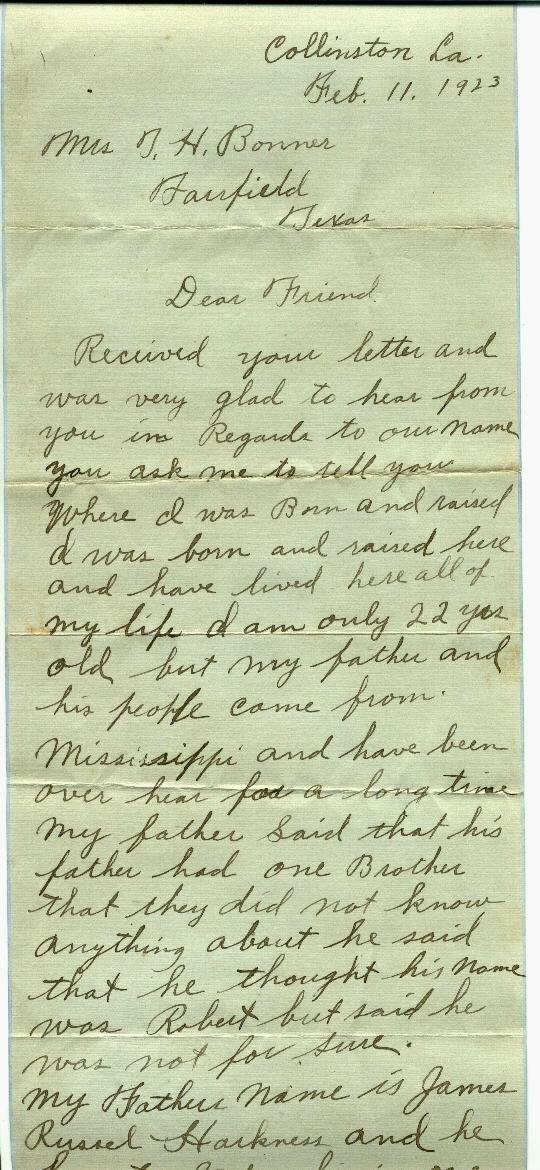 Collinston La.
Feb. 11. 1923
Mrs T. H. Bonner
Fairfield
Texas
Dear Friend
Received your letter and
was very glad to hear from
you in Regards to our name
you ask me to tell you
Where I was Born and raised
I was born and raised here
and have lived here all of
my life I am only 22 yrs
old but my father and
his people come from.
Mississippi and have been
over hear for a long time
My father Said that his
father had one Brother
that they did not know
anything about he said
that he thought his name
was Robert but said he
was not for sure.
My Fathers Name is James
Russel Harkness and he